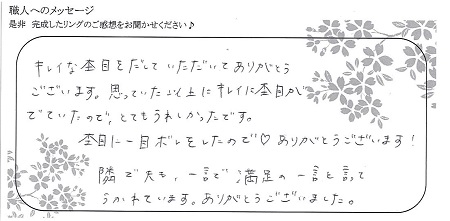 職人へのメッセージ
是非 完成したリングのご感想をお聞かせください♪
キレイな杢目をだしていただいてありがとう
ございます。思っていた以上にキレイに杢目が
でていたので、とてもうれしかったです。
杢目に一目ボレをしたので♡ ありがとうございます!
隣で夫も、一言で満足の一言と言って
うかれています。ありがとうございました。